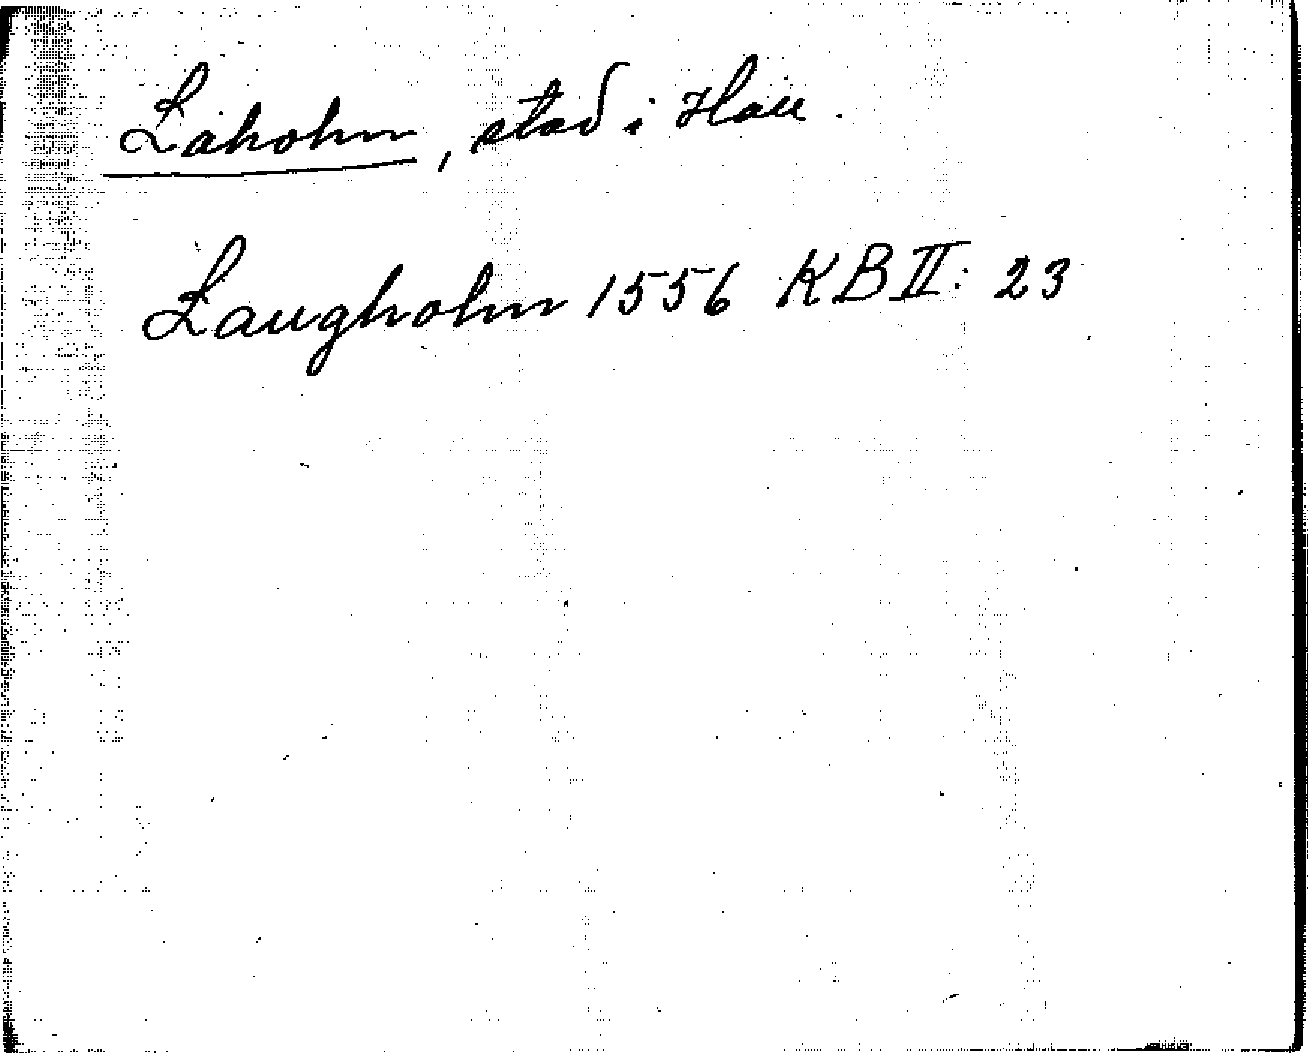 Laholm, stad i Hall.
Laugholm 1556 KB II: 23